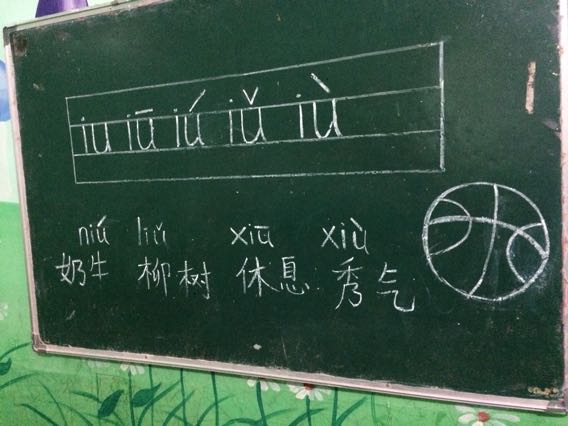 iu iū iú iǔ iù
niú liǔ xiū xiù
奶牛 柳树 休息 秀气